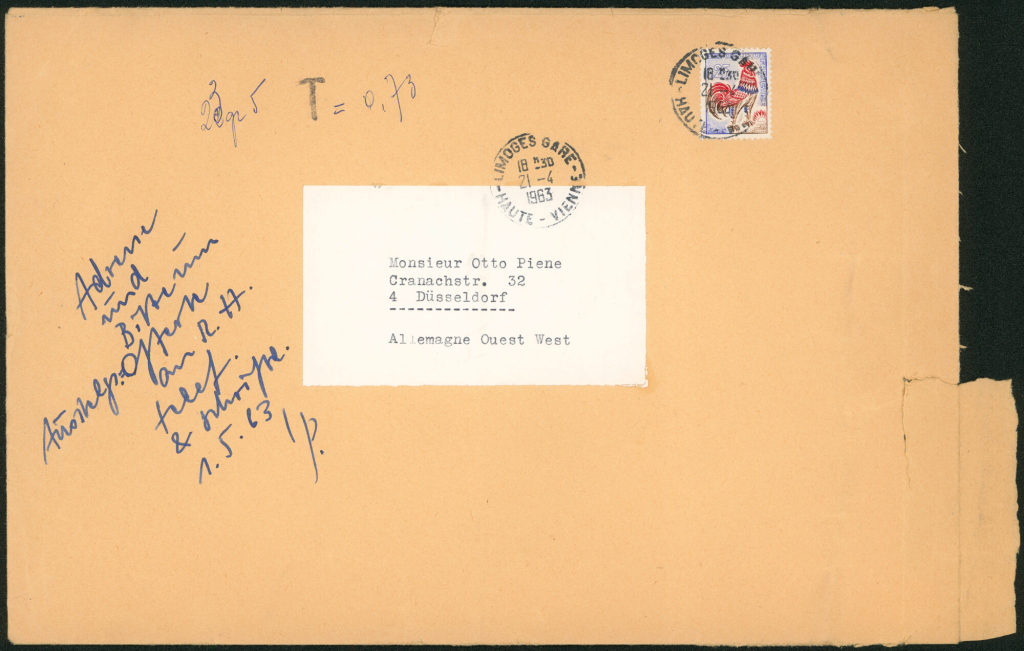 T = 0,73
LIMOGES GARE
18 H30
21 -4
1963
HAUTE - VIENNE
LIMOGES GARE
18 H30
21 -4
1963
HAUTE - VIENNE
Monsieur Otto Piene
Cranachstr. 32
4 Düsseldorf
Allemagne Ouest West
Adresse
und
Bitte um
Offerte
an R. H.
telef.
& schriftl.
1.5.63